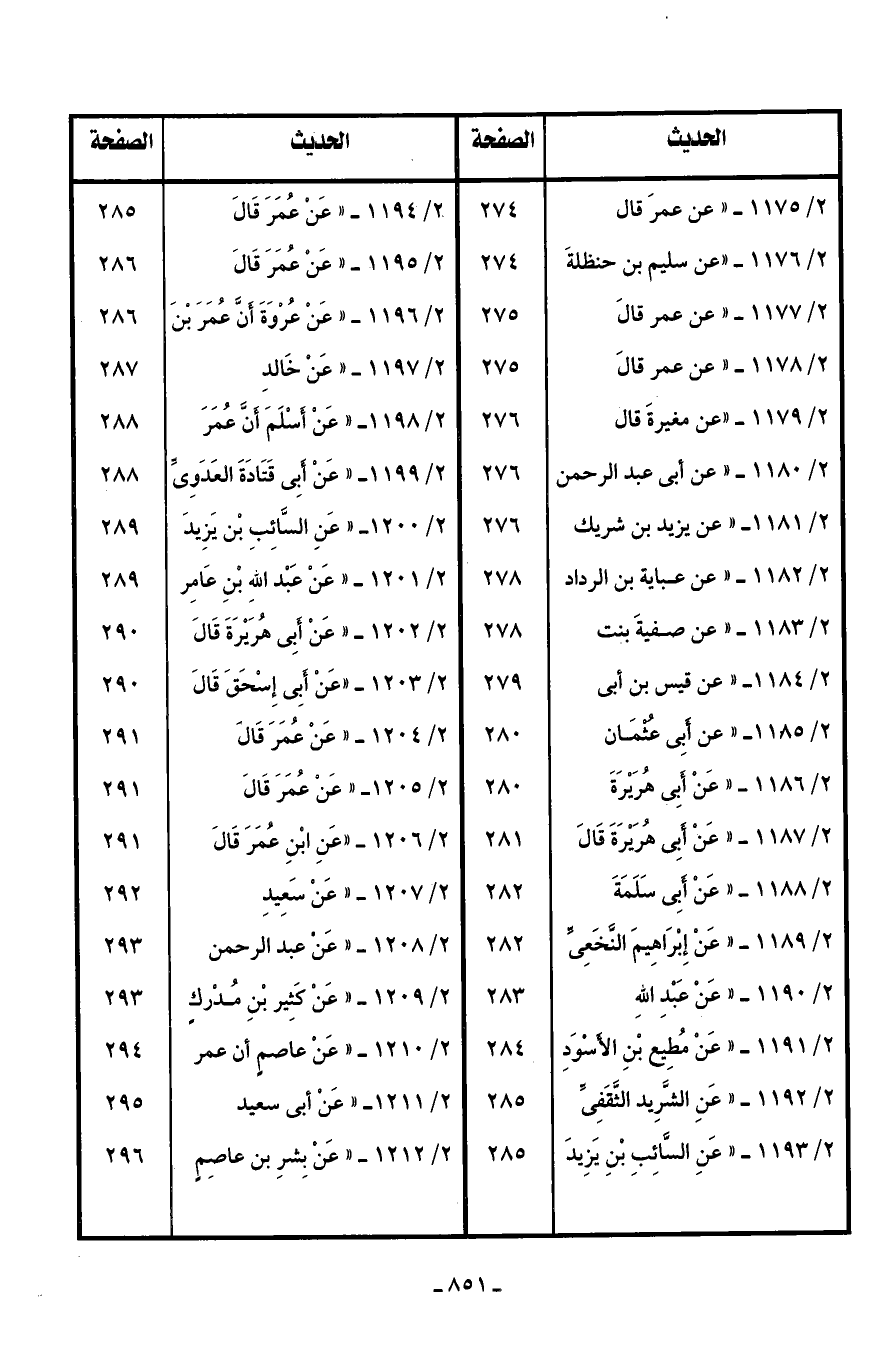 الحديث الصفحة الحديث الصفحة
٢/ ١١٧٥ ـ « عن عمرَ قال ٢٧٤ ٢/ ١١٩٤ ـ « عَنْ عُمَرَ قَالَ ٢٨٥
٢/ ١١٧٦ ـ «عن سليم بن حنظلةَ ٢٧٤ ٢/ ١١٩٥ ـ « عَنْ عُمَرَ قَالَ ٢٨٦
٢/ ١١٧٧ ـ « عن عمر قالَ ٢٧٥ ٢/ ١١٩٦ ـ « عَنْ عُرْوَةَ أَنَّ عُمَرَ بْنَ ٢٨٦
٢/ ١١٧٨ ـ « عن عمر قالَ ٢٧٥ ٢/ ١١٩٧ ـ « عَنْ خَالدِ ٢٨٧
٢/ ١١٧٩ ـ «عن مغيرةَ قال ٢٧٦ ٢/ ١١٩٨ـ « عَنْ أَسْلَمَ أَنَّ عُمَرَ ٢٨٨
٢/ ١١٨٠ ـ « عن أبى عبد الرحمن ٢٧٦ ٢/ ١١٩٩ـ « عَنْ أَبِى قَتَادَةَ العَدَوِىِّ ٢٨٨
٢/ ١١٨١ـ « عن يزيد بن شريك ٢٧٦ ٢/ ١٢٠٠ـ « عَنِ السَّائِبِ بْنِ يَزِيدَ ٢٨٩
٢/ ١١٨٢ ـ « عن عباية بن الرداد ٢٧٨ ٢/ ١٢٠١ ـ « عَنْ عَبْدِ اللهِ بْنِ عَامِر ٢٨٩
٢/ ١١٨٣ ـ « عن صفيةَ بنت ٢٧٨ ٢/ ١٢٠٢ ـ « عَنْ أَبِى هُرَيْرَةَ قَالَ ٢٩٠
٢/ ١١٨٤ـ « عن قيس بن أبى ٢٧٩ ٢/ ١٢٠٣ ـ «عَنْ أَبِى إِسْحَقَ قَالَ ٢٩٠
٢/ ١١٨٥ـ « عن أَبِى عُثْمَان ٢٨٠ ٢/ ١٢٠٤ ـ « عَنْ عُمَرَ قَالَ ٢٩١
٢/ ١١٨٦ ـ « عَنْ أَبِى هُرَيْرَةَ ٢٨٠ ٢/ ١٢٠٥ـ « عَنْ عُمَرَ قَالَ ٢٩١
٢/ ١١٨٧ ـ « عَنْ أَبِى هُرَيْرَةَ قَالَ ٢٨١ ٢/ ١٢٠٦ ـ «عَنِ ابْنِ عُمَرَ قَالَ ٢٩١
٢/ ١١٨٨ ـ « عَنْ أَبِى سَلَمَةَ ٢٨٢ ٢/ ١٢٠٧ ـ « عَنْ سَعِيدِ ٢٩٢
٢/ ١١٨٩ ـ « عَنْ إِبْرَاهِيمَ النَّخَعِىِّ ٢٨٢ ٢/ ١٢٠٨ ـ « عَنْ عبد الرحمن ٢٩٣
٢/ ١١٩٠ ـ « عَنْ عَبْدِ اللهِ ٢٨٣ ٢/ ١٢٠٩ ـ « عَنْ كَثِيرِ بْنِ مُدْركٍ ٢٩٣
٢/ ١١٩١ ـ « عَنْ مُطِيعِ بْنِ الأَسْوَدِ ٢٨٤ ٢/ ١٢١٠ ـ « عَنْ عاصمٍ أن عمر ٢٩٤
٢/ ١١٩٢ ـ « عَنِ الشَّرِيدِ الثَّقَفِىِّ ٢٨٥ ٢/ ١٢١١ـ « عَنْ أبى سعيد ٢٩٥
٢/ ١١٩٣ ـ « عَنِ السَّائِبِ بْنِ يَزِيدَ ٢٨٥ ٢/ ١٢١٢ ـ « عَنْ بِشرِ بن عاصمٍ ٢٩٦
ـ ٨٥١ ـ